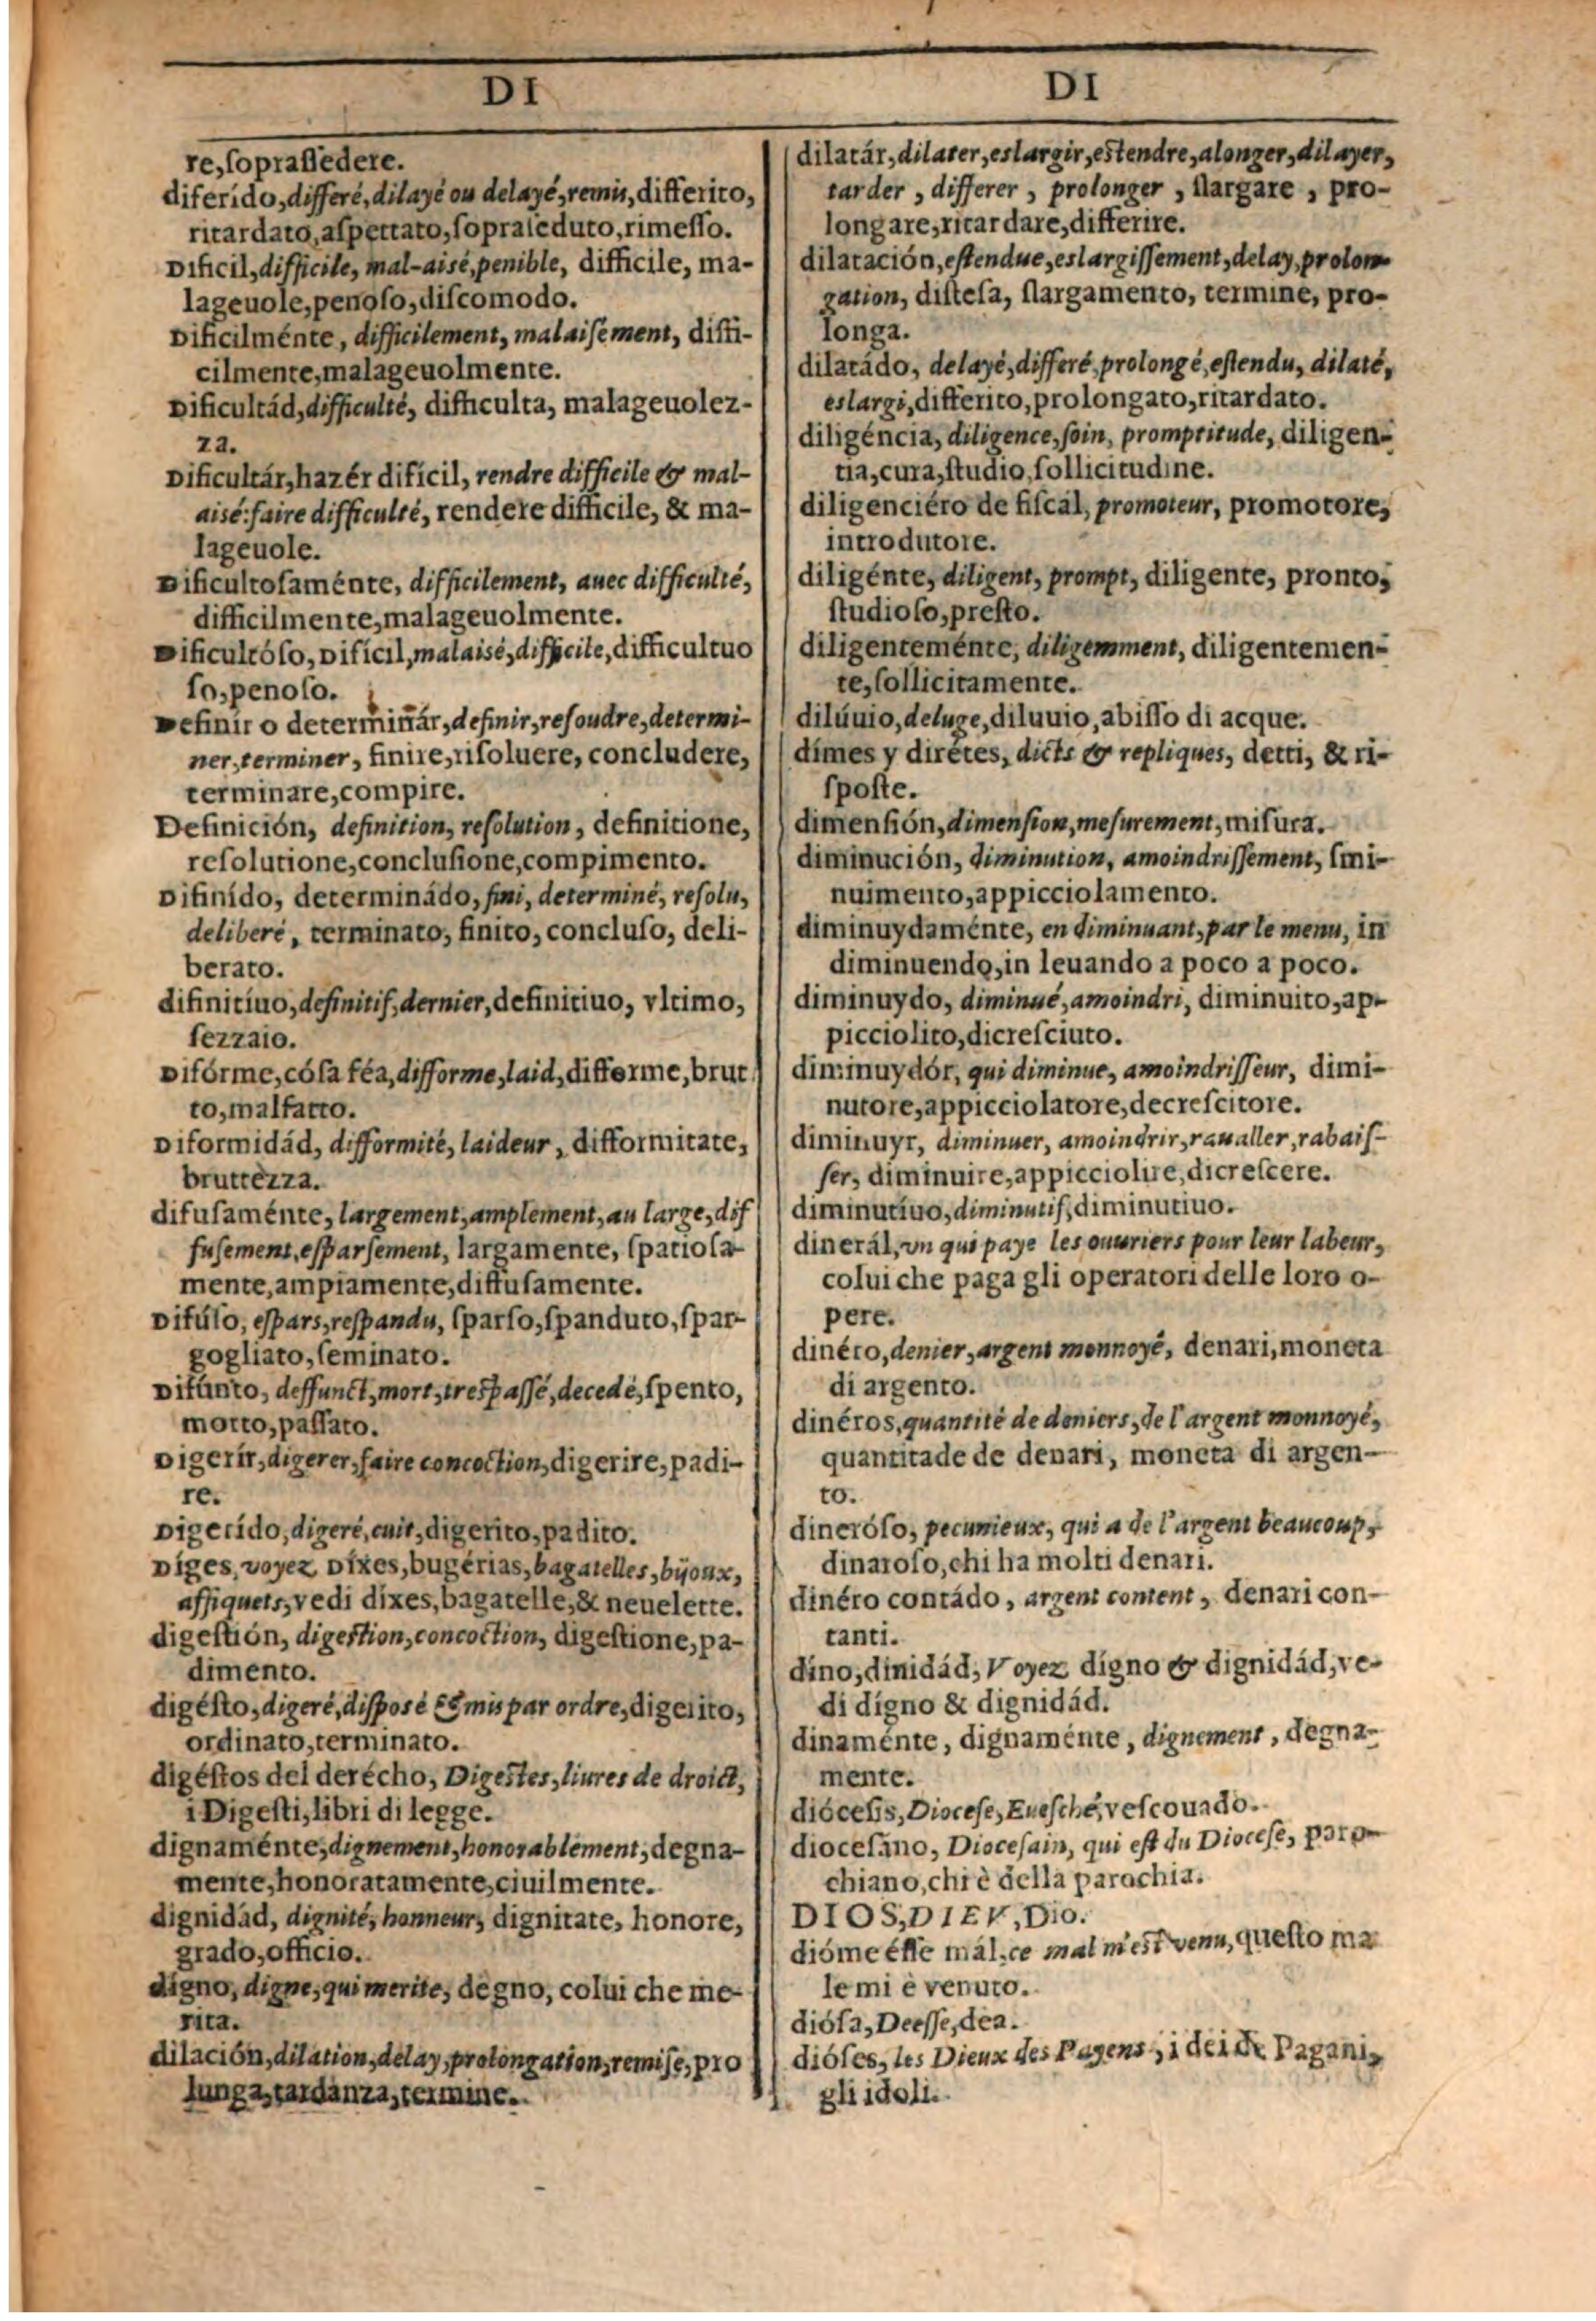 DI
re,ſopraſſedere.
diferído,differé,dilayé ou delayé,remis,differito,
ritardato,aſpettato,ſopraſeduto,rimeſſo.
Dificil,difficile, mal-aisé,penible, difficile, ma-
lageuole,penoſo,diſcomodo.
Dificilménte, difficilement, malaiſement, diffi-
cilmente,malageuolmente.
Dificultád,difficulté, difficulta, malageuolez-
za.
Dificultár,hazér difícil, rendre difficile & mal-
aisé:faire difficulté, rendere difficile, & ma-
lageuole.
Dificultoſaménte, difficilement, auec difficulté,
difficilmente,malageuolmente.
Dificultóſo, Difícil,malaisé,difficile,difficultuo
ſo,penoſo.
Definír o determinár,definir,reſoudre,determi-
ner,terminer, finire,riſoluere, concludere,
terminare,compire.
Definición, definition, reſolution, definitione,
reſolutione,concluſione,compimento.
Difinído, determinádo, fini, determiné, reſolu,
deliberé, terminato, finito, concluſo, deli-
berato.
difinitíuo,definitif,dernier,definitiuo, vltimo,
ſezzaio.
Difórme,cóſa féa,difforme,laid,difforme,brut
to,malfatto.
Diformidád, difformité, laideur, difformitate,
bruttezza.
difuſaménte, largement,amplement,au large,dif
fuſement,eſparſement, largamente, ſpatioſa-
mente,ampiamente,diffuſamente.
Difúſo, eſpars,reſpandu, ſparſo,ſpanduto,ſpar-
gogliato,ſeminato.
Difúnto, deffunct,mort,treſpaſſé,decedé,ſpento,
morto,paſſato.
Digerír,digerer,faire concoction,digerire,padi-
re.
Digerído,digeré,cuit,digerito,padito.
Díges, voyez Díxes,bugérias,bagatelles,bijoux,
affiquets,vedi díxes,bagatelle,& neuelette.
digeſtión, digeſtion,concoction, digeſtione,pa-
dimento.
digéſto,digeré,diſposé & mis par ordre,digerito,
ordinato,terminato.
digéſtos del derécho, Digeſtes,liures de droict,
i Digeſti,libri di legge.
dignaménte,dignement,honorablement,degna-
mente,honoratamente,ciuilmente.
dignidád, dignité, honneur, dignitate, honore,
grado,officio.
dígno, digne,qui merite, degno, colui che me-
rita.
dilación,dilation,delay,prolongation,remiſe,pro
lunga,tardanza,termine.
DI
dilatár,dilater,eslargir,eſtendre,alonger,dilayer,
tarder, differer, prolonger, ſlargare, pro-
longare,ritardare,differire.
dilatación,eſtendue,eslargiſſement,delay,prolon-
gation, diſteſa, ſlargamento, termine, pro-
longa.
dilatádo, delayé,differé,prolongé,eſtendu, dilaté,
eslargi,differito,prolongato,ritardato.
diligéncia, diligence,ſoin, promptitude, diligen-
tia,cura,ſtudio,ſollicitudine.
diligenciéro de fiſcál, promoteur, promotore,
introdutore.
diligénte, diligent, prompt, diligente, pronto,
ſtudioſo,preſto.
diligenteménte, diligemment, diligentemen-
te,ſollicitamente.
dilúuio,deluge,diluuio,abiſſo di acque.
dímes y dirétes, dicts & repliques, detti, & ri-
ſpoſte.
dimenſión,dimenſion,meſurement,miſura.
diminución, diminution, amoindriſſement, ſmi-
nuimento,appicciolamento.
diminuydaménte, en diminuant,par le menu, in
diminuendo,in leuando a poco a poco.
diminuydo, diminué,amoindri, diminuito,ap-
picciolito,dicreſciuto.
diminuydór, qui diminue, amoindriſſeur, dimi-
nutore,appicciolatore,decreſcitore.
diminuyr, diminuer, amoindrir,raualler,rabaiſ-
ſer, diminuire,appicciolire,dicreſcere.
diminutíuo,diminutif,diminutiuo.
dinerál,vn qui paye les ouuriers pour leur labeur,
colui che paga gli operatori delle loro o-
pere.
dinéro,denier,argent monnoyé, denari,moneta
di argento.
dinéros,quantité de deniers,de l'argent monnoyé,
quantitade de denari, moneta di argen-
to.
dineróſo, pecunieux, qui a de l'argent beaucoup,
dinaroſo,chi ha molti denari.
dinéro contádo, argent content, denari con-
tanti.
díno,dinidád, Voyez dígno & dignidád,ve-
di dígno & dignidád.
dinaménte, dignaménte, dignement, degna-
mente.
dióceſis,Dioceſe,Eueſché,veſcouado.
dioceſáno, Dioceſain, qui eſt du Dioceſe, paro-
chiano,chi è della parochia.
DIOS,DIEV,Dio.
dióme éſſe mál,ce mal m'eſt venu,queſto ma
le mi è venuto.
dióſa,Deeſſe,dea.
dióſes, les Dieux des Payens, i dei de Pagani,
gli idoli.